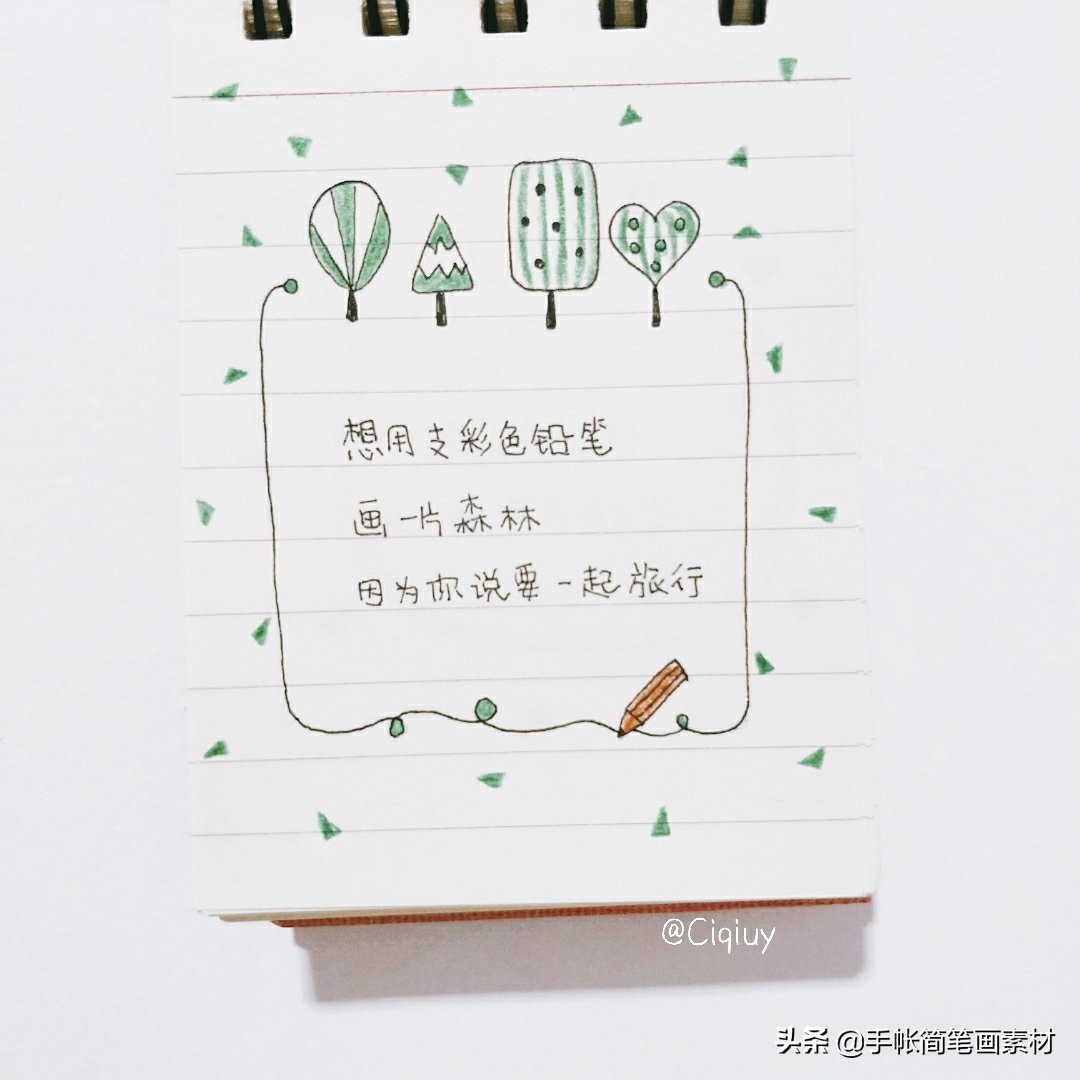 想用支彩色铅笔
画一片森林
因为你说要一起旅行
@Ciqiuy
头条 @手帐简笔画素材